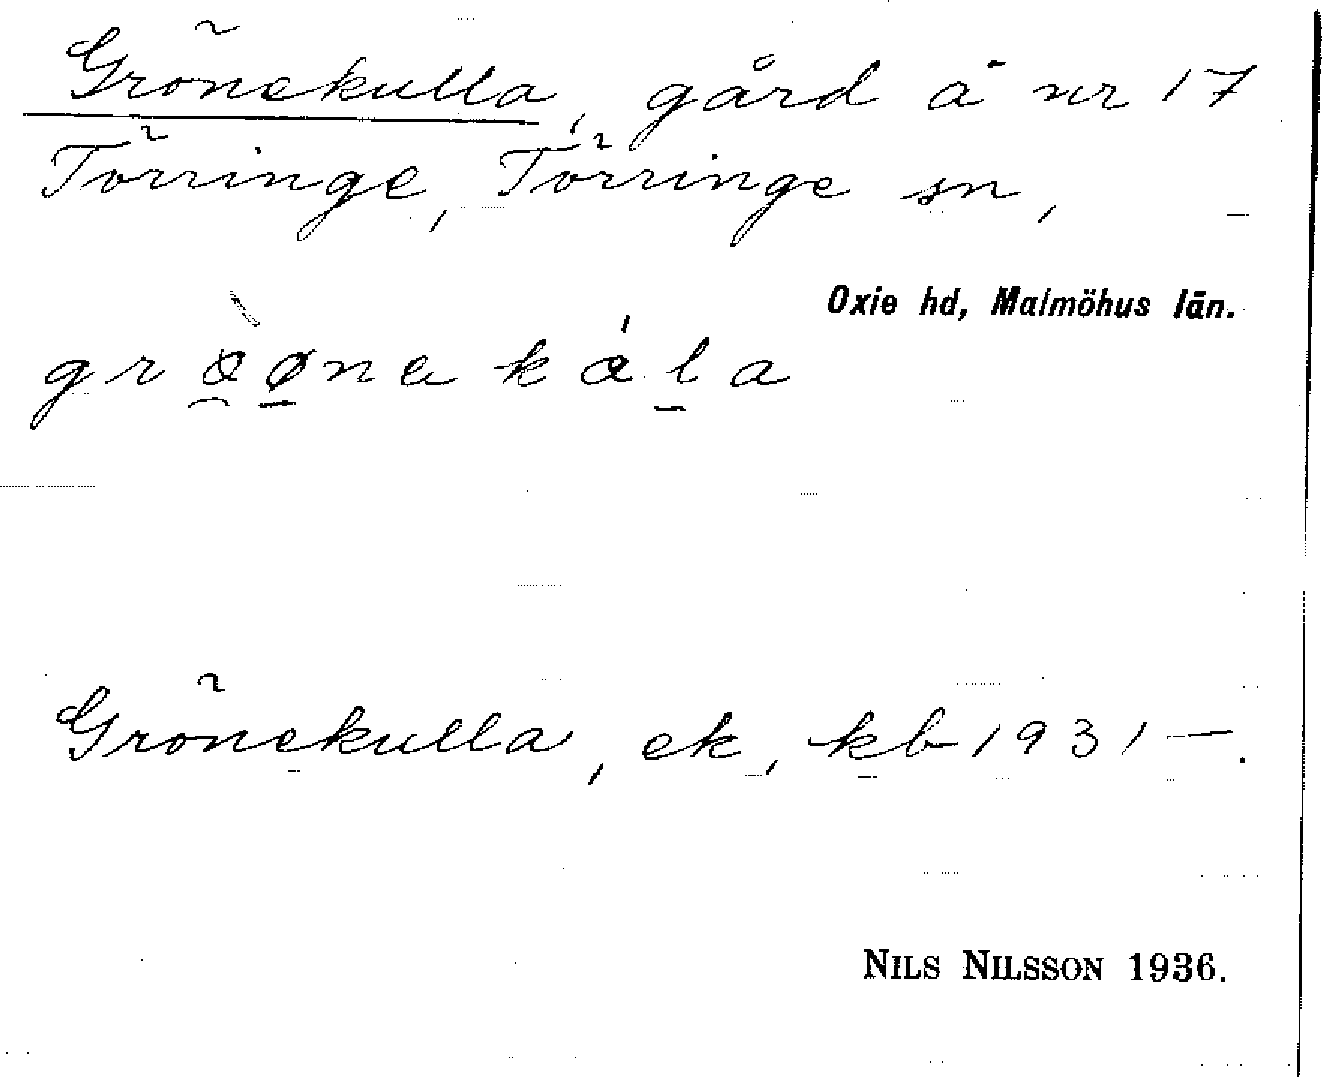 Grönekulla, gård å nr 17
Törringe, Törringe sn,
Oxie hd, Malmöhus län.
Grönekulla, ek, kb 1931—.
NILS NILSSON 1936.